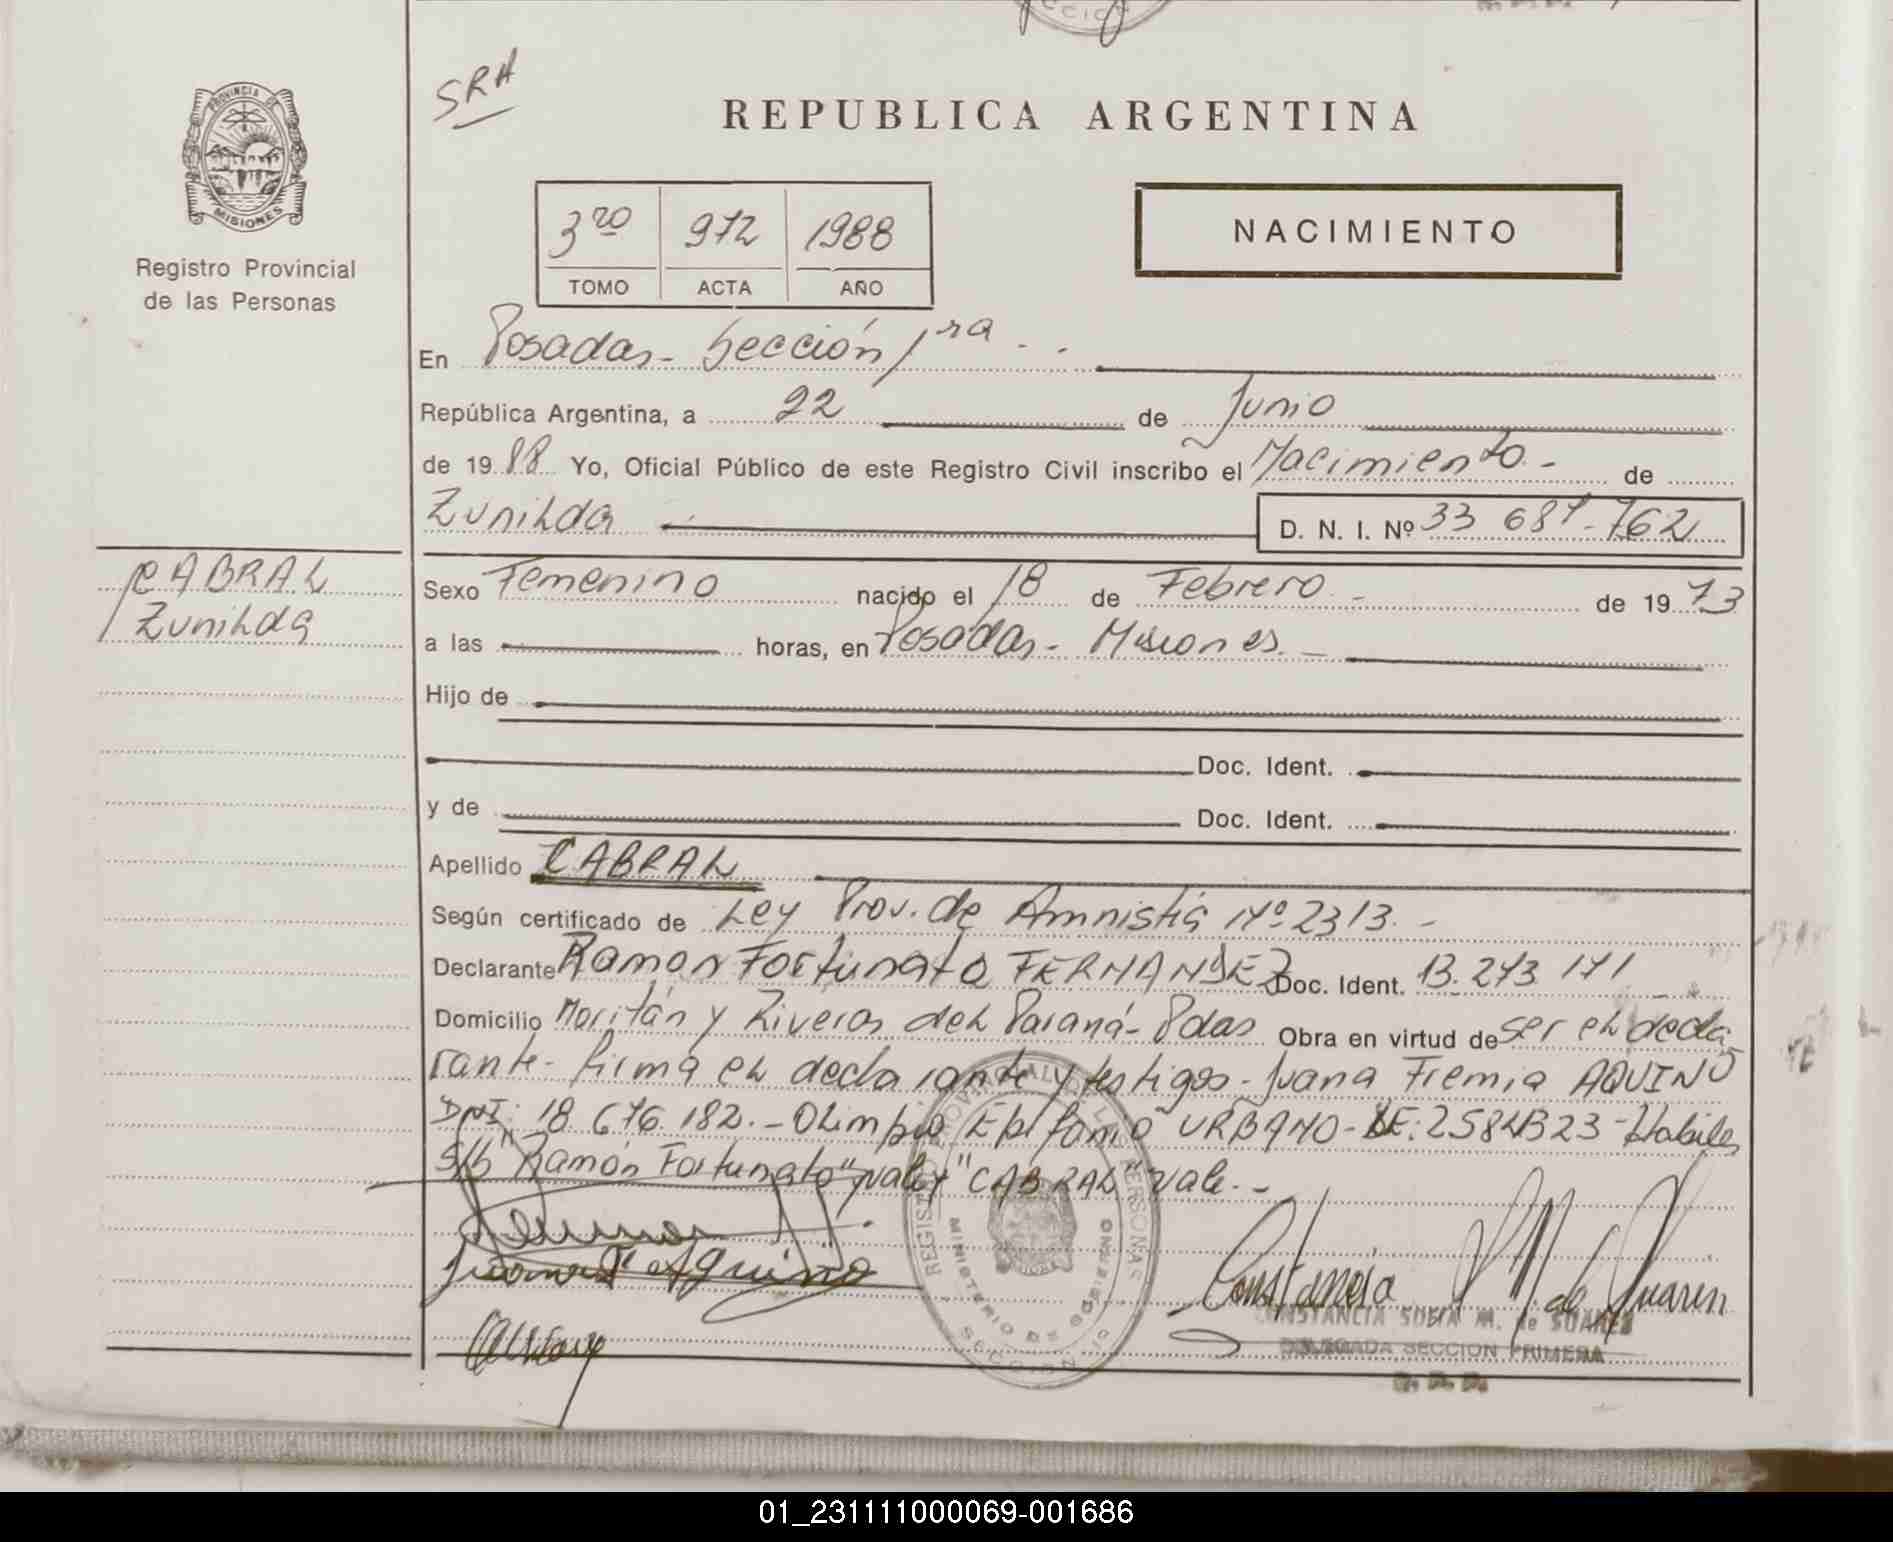 SRA
REPUBLICA ARGENTINA
PROVINCIA DE
MISIONES
Registro Provincial
de las Personas
3ro 972 1988
TOMO ACTA AÑO
NACIMIENTO
En Posadas - Sección 1ra
República Argentina, a 22 de Junio
de 1988 Yo, Oficial Público de este Registro Civil inscribo el Nacimiento - de
Zunilda D. N. I. Nº 33 681-762
CABRAL
Zunilda
Sexo Femenino nacido el 18 de Febrero - de 1973
a las horas, en Posadas - Misiones. -
Hijo de
Doc. Ident.
y de Doc. Ident.
Apellido CABRAL
Según certificado de Ley Prov. de Amnistía Nº 2313. -
Declarante Ramon Fortunato FERNANDEZ Doc. Ident. 13.273 171
Domicilio Moritán y Riveros del Paraná - Pdas Obra en virtud de ser el decla
rante - firma el declarante y testigos - Juana Fremia AQUINO
DNI: 18.676.182. - Olimpio Epifanio URBANO - LE: 2584323 - Habiles
S/b "Ramón Fortunato" vale y "CABRAL" vale. -
Juana F Aquino
Constancia S M de Suarez
CONSTANCIA SOFIA M. de SUAREZ
DELEGADA SECCION PRIMERA
R. P. P.
REGISTRO PROVINCIAL DE LAS PERSONAS
MINISTERIO DE GOBIERNO
SECCION 1º
01_231111000069-001686